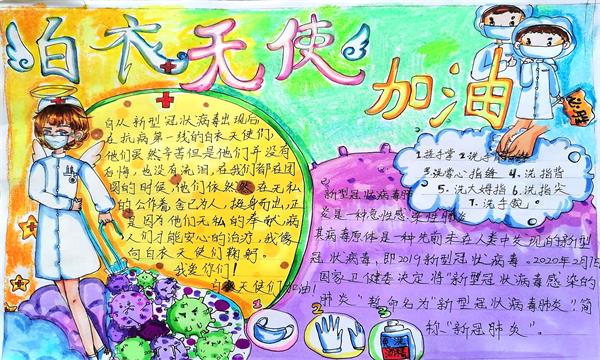 白衣天使
加油
自从新型冠状病毒出现后
在抗病第一线的白衣天使们,
他们虽然辛苦但是他们并没有
后悔,也没有流泪,在我们都在团
圆的时候,他们依然在无私
的工作着,舍己为人,挺身而出,正
是因为他们无私的奉献,病
人们才能安心的治疗,我像
向白衣天使们鞠躬。
我爱你们!
白衣天使们加油!
1.洗手掌 2.洗手
3.洗掌心指缝 4.洗指背
5.洗大拇指 6.洗指尖
7.洗手腕
新型冠状病毒肺
炎是一种急性感染性肺炎
其病毒原体是一种先前未在人类中发现的新型
冠状病毒,即2019新型冠状病毒。2020年2月15
国家卫健委决定将"新型冠状病毒感染的
肺炎"暂命名为"新型冠状病毒肺炎"简
称"新冠肺炎"。
1
2
3
酒精